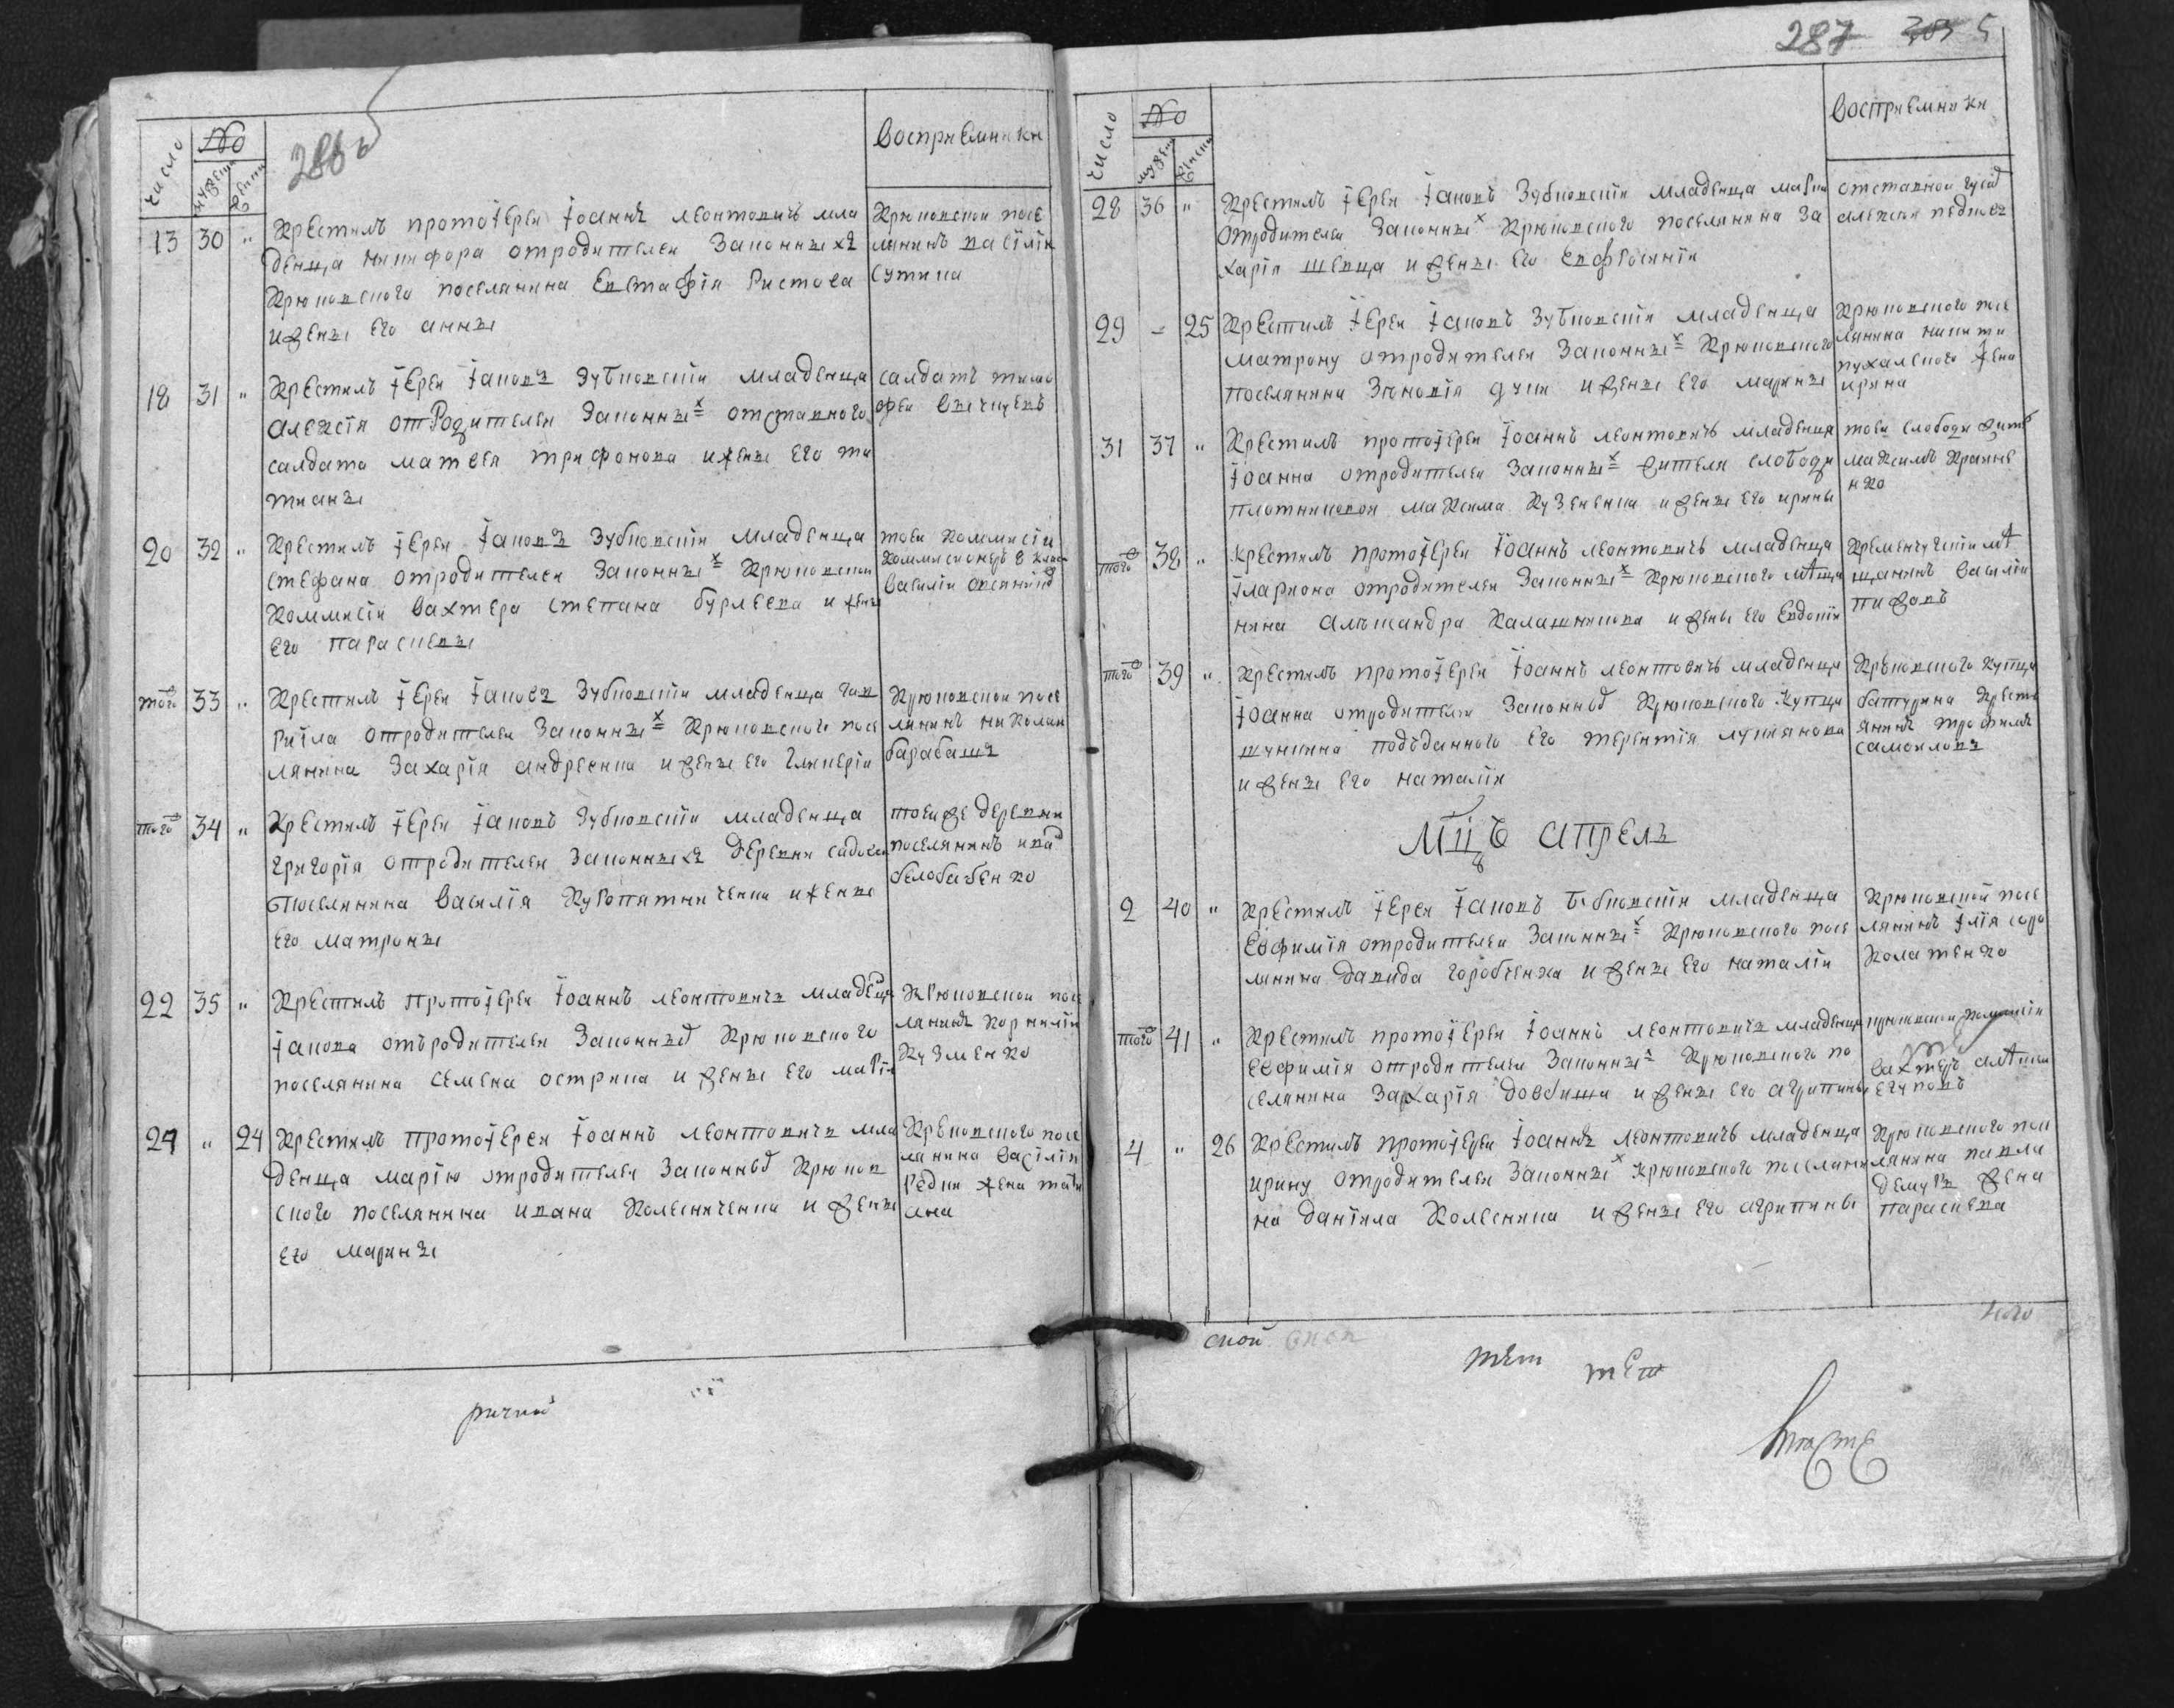 286 в
число
№
мужеска
женска
восприемники
13 30 "
Крестилъ протоїерей Їоаннъ леонтовичъ мла
денца никифора отродителей Законныхъ
Крюковского поселянина Евстафія Ристова
ижены его анны
Крюковской посе
лянинъ василій
сутика
18 31 "
Крестилъ їерей Їаковъ Зубковскій младенца
алексія отРодителей Законныхъ отставного
салдата матвея трифонова ижены его та
тианы
салдатъ тимо
фей
20 32 "
Крестилъ їерей Їаковъ Зубковскій младенца
стефана отродителей Законныхъ Крюковской
Коммисіи вахтера степана бурлеева и жены
его параскевы
тоей Коммисіи
Коммисионеръ 8 клас
василій
того 33 "
Крестилъ їерей Їаковъ Зубковскій младенца гав
риїла отродителей Законныхъ Крюковского посе
лянина Захарія андреенка и жены его гликеріи
Крюковской посе
лянинъ николай
барабашъ
того 34 "
Крестилъ їерей Їаковъ Зубковскій младенца
григорія отродителей Законныхъ деревни садовой
поселянина василія Куропятниченка ижены
его матроны
тоейже деревни
поселянинъ иванъ
белобабенко
22 35 "
Крестилъ протоїерей Їоаннъ леонтовичъ младенца
їакова отъродителей Законныхъ Крюковского
поселянина семена острика и жены его маріи
Крюковской посе
лянинъ корнилій
Кузменко
24 " 24
Крестилъ протоїерей Їоаннъ леонтовичъ мла
денца марію отродителей Законныхъ Крюков
ского поселянина ивана Колесниченка и жены
его марины
Крюковского посе
лянина василія
редки жена тати
ана
287 5
число
№
мужеска
женска
восприемники
28 36 "
Крестилъ їерей Їаковъ Зубковскій младенца
отродителей Законныхъ Крюковского поселянина За
харія шевца и жены его евфросиніи
отставной гусар
алексей
29 - 25
Крестилъ їерей Їаковъ Зубковскій младенца
матрону отродителей Законныхъ Крюковского
поселянина Зѣновія дуки и жены его марины
Крюковского посе
лянина никиты
пухалского жена
ирина
31 37 "
Крестилъ протоїерей Їоаннъ леонтовичъ младенца
їоанна отродителей Законныхъ жителя слободы
плотницкой маКсима Кузененка и жены его ирины
тоей слободы жител
маКсимъ Кравче
нко
того 38 "
крестилъ протоїерей Їоаннъ леонтовичъ младенца
їлариона отродителей Законныхъ Крюковского мѣща
нина алеѯандра Калашникова и жены его Евдокіи
Кременчугскій мѣ
щанинъ василій
пижовъ
того 39 "
Крестилъ протоїерей Їоаннъ леонтовичъ младенца
їоанна отродителей Законныхъ Крюковского Купца
шункина подъданного его терентія лукянова
и жены его наталіи
Крюковского купца
батурина Кресть
янинъ трофимъ
самойловъ
Мцъ апрель
2 40 "
Крестилъ їерей Їаковъ Зубковскій младенца
Евфимія отродителей Законныхъ Крюковского посе
лянина давида горобченка и жены его наталіи
Крюковской посе
лянинъ їлія соро
Колатенко
того 41 "
Крестилъ протоїерей Їоаннъ леонтовичъ младенца
евфимія отродителей Законныхъ Крюковского по
селянина Захарія довбиша и жены его агрипины
крюковской Комисіи
вахтеръ алѣксей
егуновъ
4 " 26
Крестилъ протоїерей Їоаннъ леонтовичъ младенца
ирину отродителей Законныхъ Крюковского поселяни
на даніила Колесника и жены его агрипины
Крюковского посе
лянина павла
демуры жена
параскева
ской
тет тет